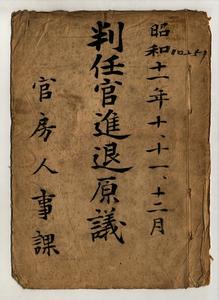 昭和十一年十、十一、十二月
判任官進退原議
官房人事課